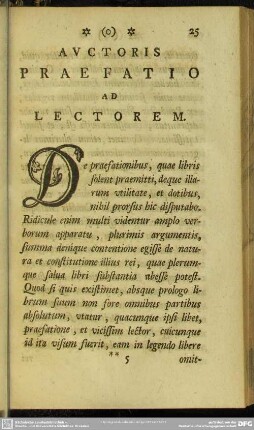 ✡ (o) ✡ 25
AVCTORIS
PRAEFATIO
AD
LECTOREM.
De praefationibus, quae libris
solent praemitti, deque illa-
rum vtilitate, et dotibus,
nihil prorsus hic disputabo.
Ridicule enim multi videntur amplo ver-
borum apparatu, plurimis argumentis,
summa denique contentione egisse de natu-
ra et constitutione illius rei, quae plerum-
que salua libri substantia abesse potest.
Quod si quis existimet, absque prologo li-
brum suum non fore omnibus partibus
absolutum, vtatur, quacunque ipsi libet,
praefatione, et vicissim lector, cuicunque
id ita visum fuerit, eam in legendo libere
** 5 omit-
DFG